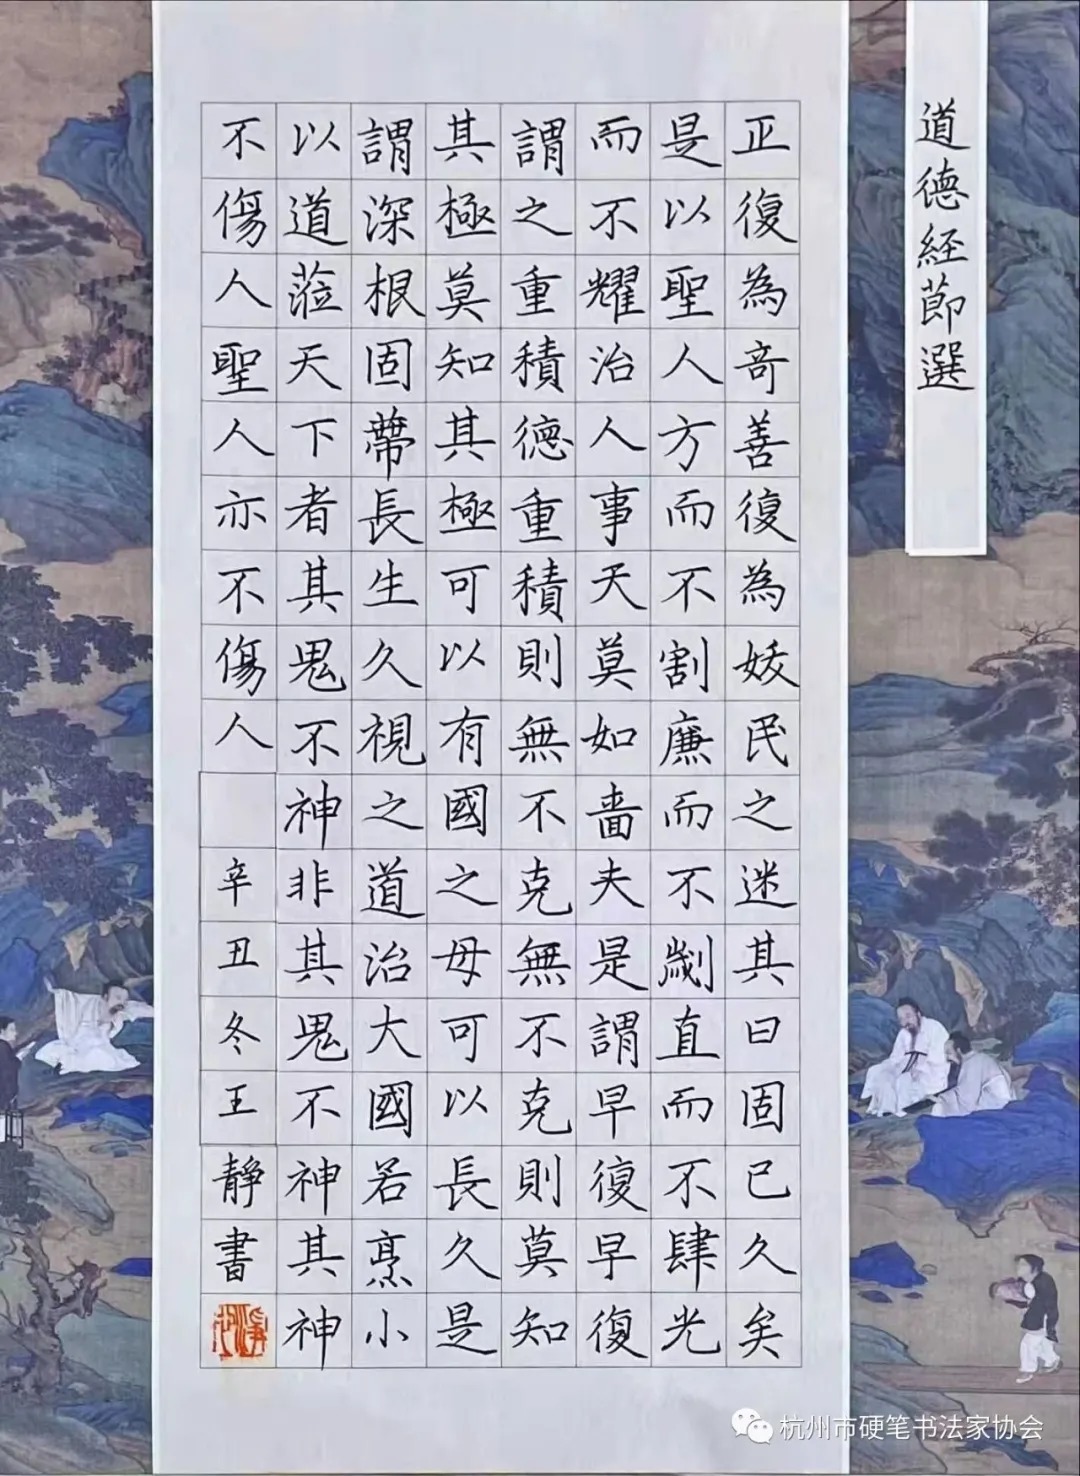 道德経節選
正復為竒善復為妖民之迷其日固已久矣
是以聖人方而不割廉而不劌直而不肆光
而不耀治人事天莫如嗇夫是謂早復早復
謂之重積德重積則無不克無不克則莫知
其極莫知其極可以有國之母可以長久是
謂深根固蔕長生久視之道治大國若烹小
以道蒞天下者其鬼不神非其鬼不神其神
不傷人聖人亦不傷人 辛丑冬王靜書
杭州市硬笔书法家协会